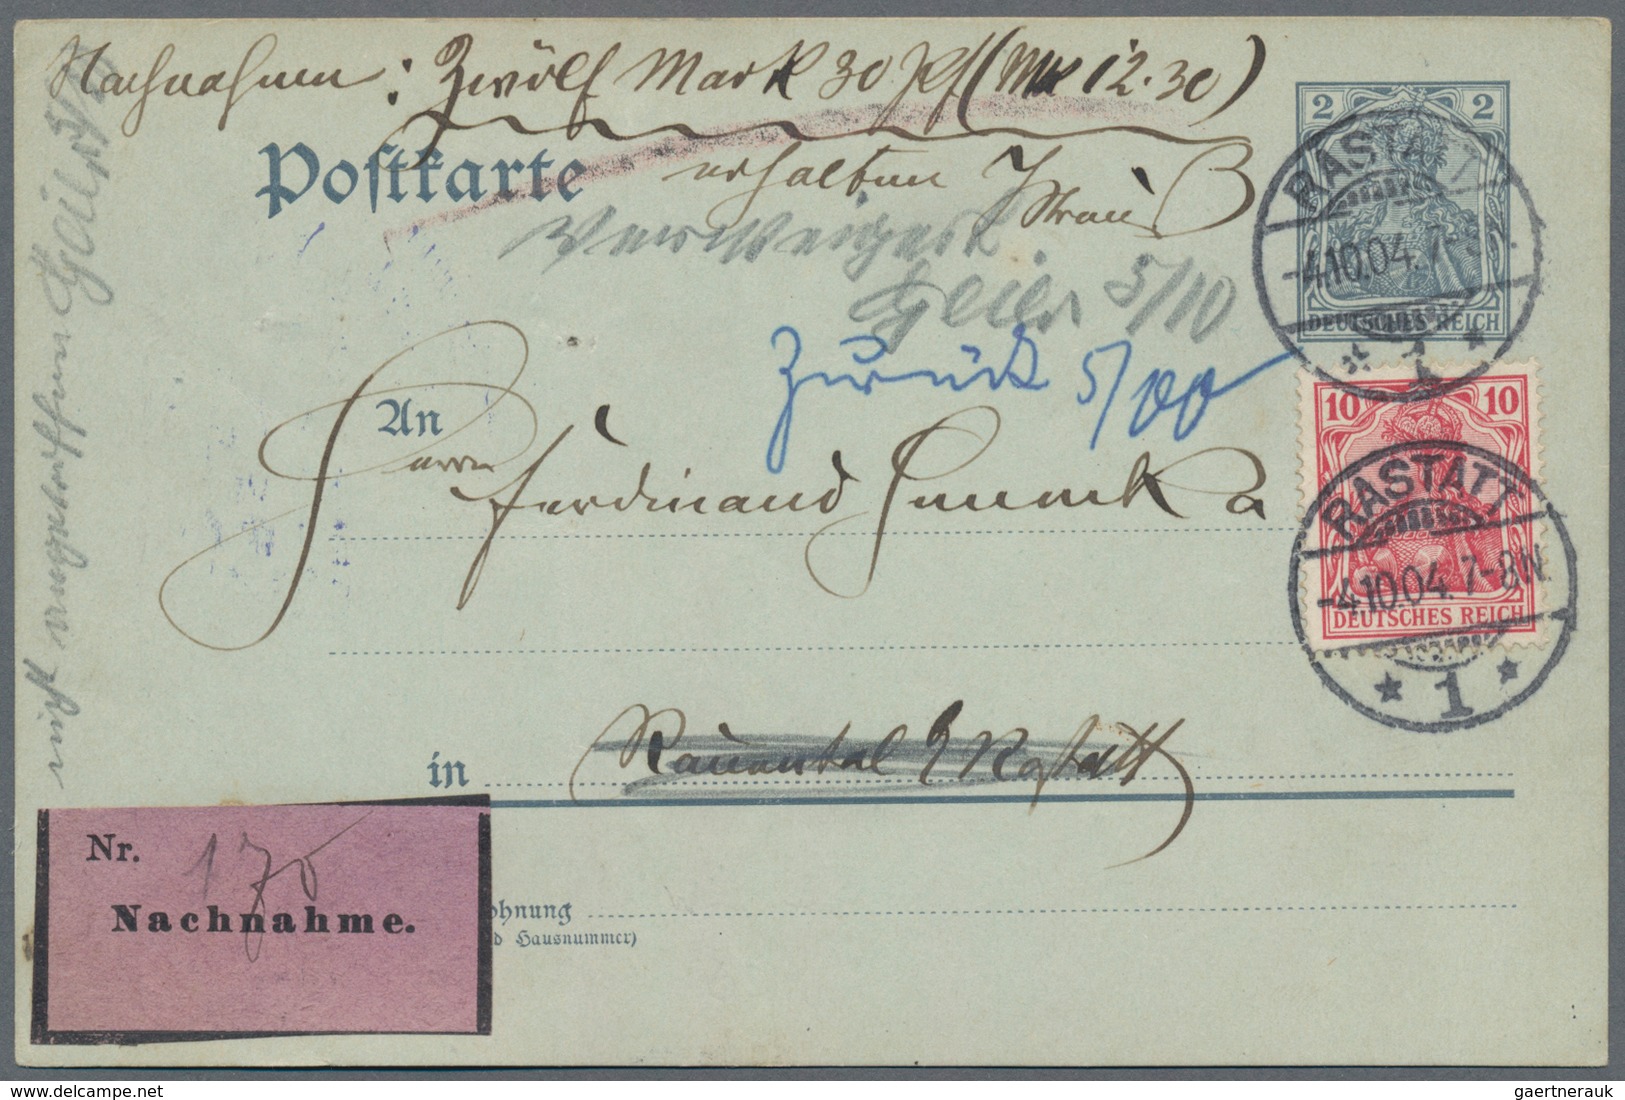 Nachnahme: Zwölf Mark 30 Pf (Mk 12.30)
Postkarte
erhalten
Verweigert.
5/10
Zurück 5/10
2 2
RASTATT
-4.10.04. 7-
DEUTSCHES REICH
10 10
RASTATT
-4.10.04. 7-8N.
DEUTSCHES REICH
* 1 *
An
Herrn
Ferdinand
in Rauental b/ Rastatt
nicht angetroffen
Nr. 170
Nachnahme.
ohnung
d Hausnummer)
www.delcampe.net
gaertnerauk